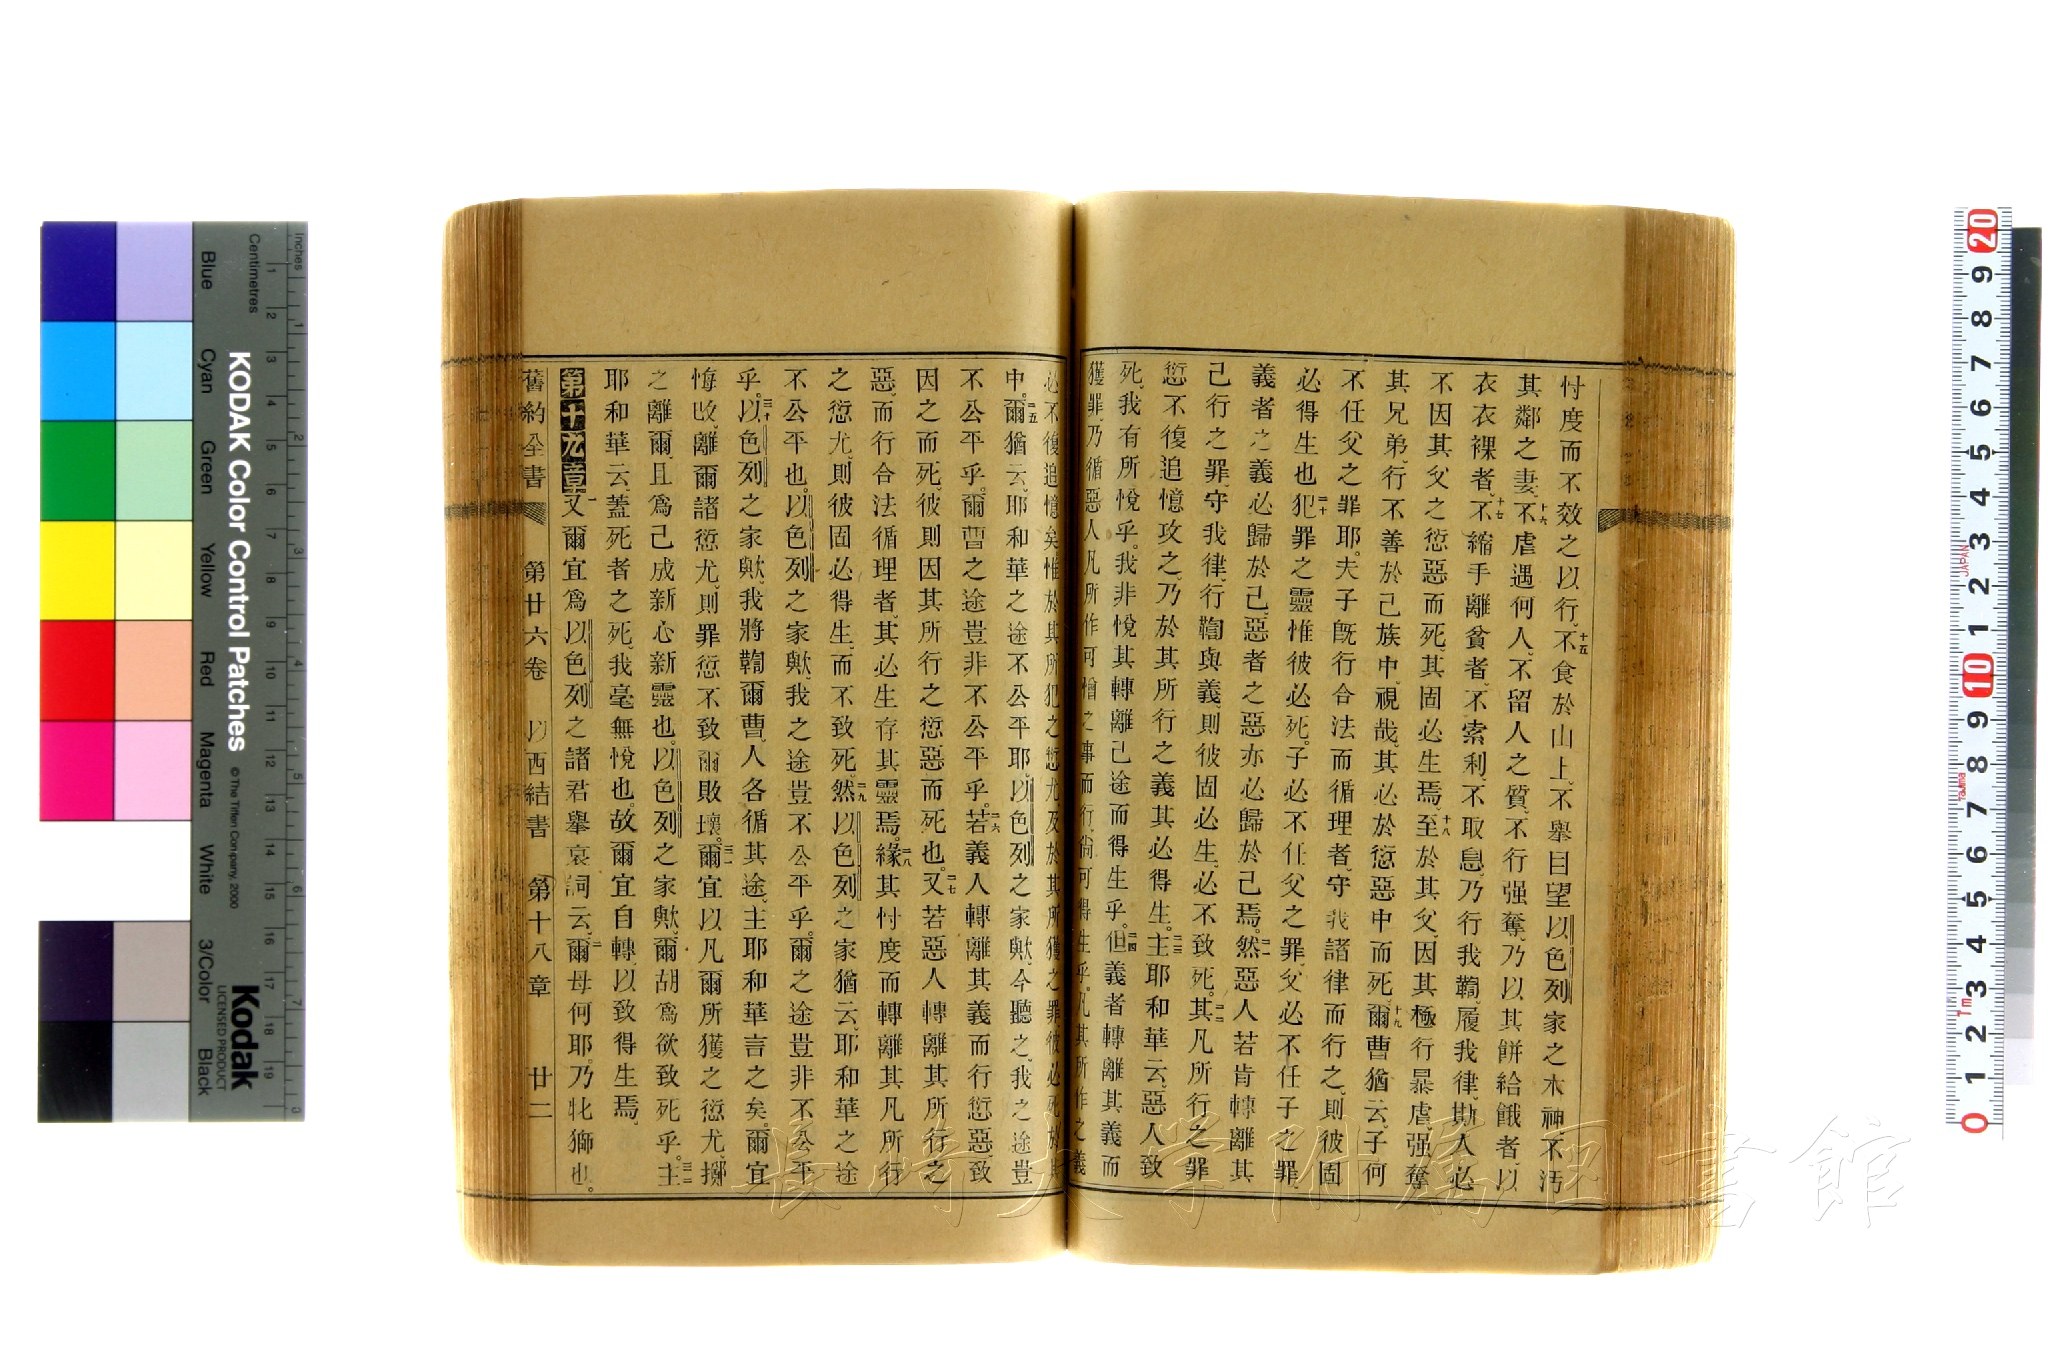 忖度而不效之以行、十五不食於山上、不舉目望以色列家之木神、不汚
其鄰之妻、十六不虐遇何人、不留人之質、不行强奪、乃以其餅給餓者、以
衣衣裸者、十七不縮手離貧者、不索利、不取息、乃行我鞫、履我律、斯人必
不因其父之愆惡而死、其固必生焉、十八至於其父、因其極行暴虐、强奪
其兄弟、行不善於己族中、視哉、其必於愆惡中而死、十九爾曹猶云、子何
不任父之罪耶。夫子旣行合法而循理者、守我諸律而行之、則彼固
必得生也、二十犯罪之靈惟彼必死。子必不任父之罪、父必不任子之罪、
義者之義必歸於己、惡者之惡亦必歸於己焉。二一然惡人若肯轉離其
己行之罪、守我律、行鞫與義、則彼固必生、必不致死。二二其凡所行之罪
愆不復追憶攻之、乃於其所行之義其必得生。二三主耶和華云、惡人致
死、我有所悅乎。我非悅其轉離己途而得生乎。二四但義者轉離其義而
獲罪、乃循惡人凡所作可憎之事而行、尙可得生乎。凡其所作之義
必不復追憶矣、惟於其所犯之愆尤及於其所獲之罪、彼必死於其
中。二五爾猶云、耶和華之途不公平耶、以色列之家歟、今聽之、我之途豈
不公平乎。爾曹之途豈非不公平乎。二六若義人轉離其義而行愆惡、致
因之而死、彼則因其所行之愆惡而死也。二七又若惡人轉離其所行之
惡、而行合法循理者、其必生存其靈焉。二八緣其忖度而轉離其凡所行
之愆尤、則彼固必得生、而不致死。二九然以色列之家猶云、耶和華之途
不公平也。以色列之家歟、我之途豈不公平乎。爾之途豈非不公平
乎。三十以色列之家歟、我將鞫爾曹、人各循其途。主耶和華言之矣。爾宜
悔改、離爾諸愆尤、則罪愆不致爾敗壞。三一爾宜以凡爾所獲之愆尤、擲
之離爾、且爲己成新心新靈也。以色列之家歟、爾胡爲欲致死乎。三二主
耶和華云、蓋死者之死、我毫無悅也。故爾宜自轉、以致得生焉。
第十九章一又爾宜爲以色列之諸君舉哀詞云、二爾母何耶。乃牝獅也。
舊約全書 第廿六卷 以西結書 第十八章 廿二
長崎大学附属図書館
KODAK Color Control Patches
© The Tiffen Company, 2000
Kodak
LICENSED PRODUCT
Blue Cyan Green Yellow Red Magenta White 3/Color Black
Inches
Centimetres
JAPAN
Tajima
7m